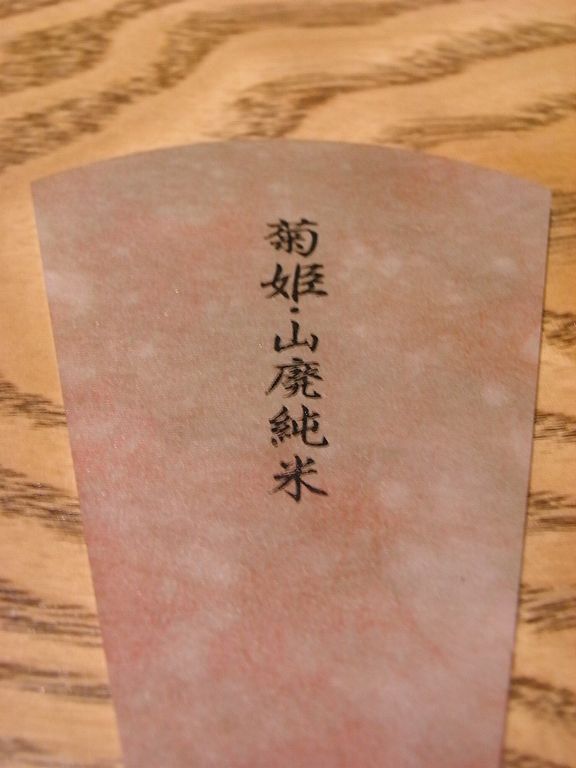 菊姫・山廃純米